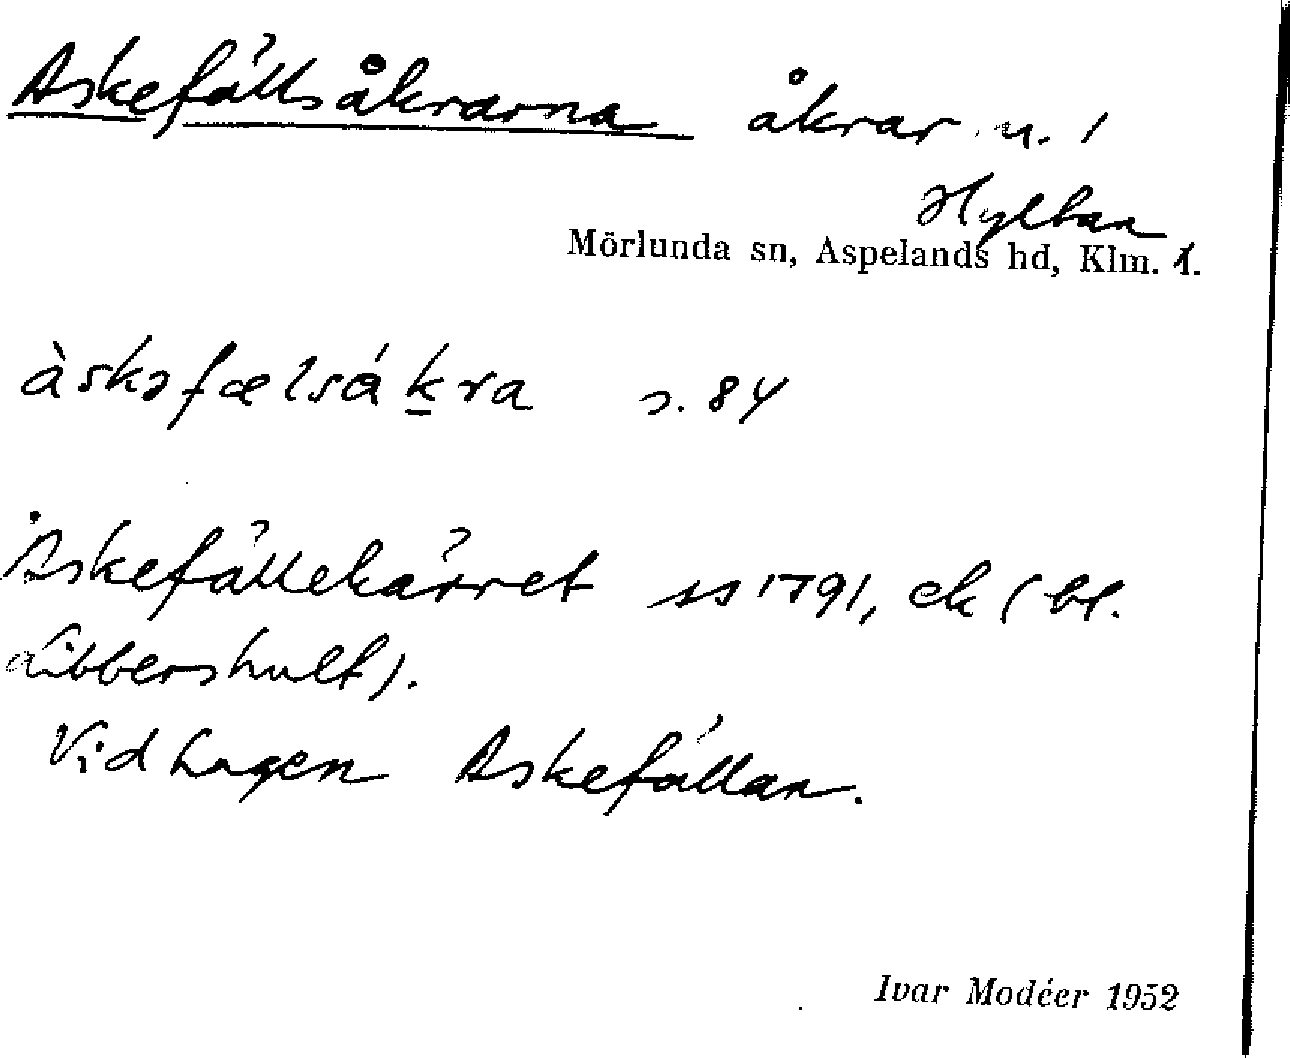 Askefällsåkrarna åkrar n. i
Hyltan
Mörlunda sn, Aspelands hd, Klm. l.
àskəfælsák̲ra s. 84
Askefällekärret ss 1791, ek (bl.
Libbershult).
Vid hagen Askefällan.
Ivar Modéer 1952